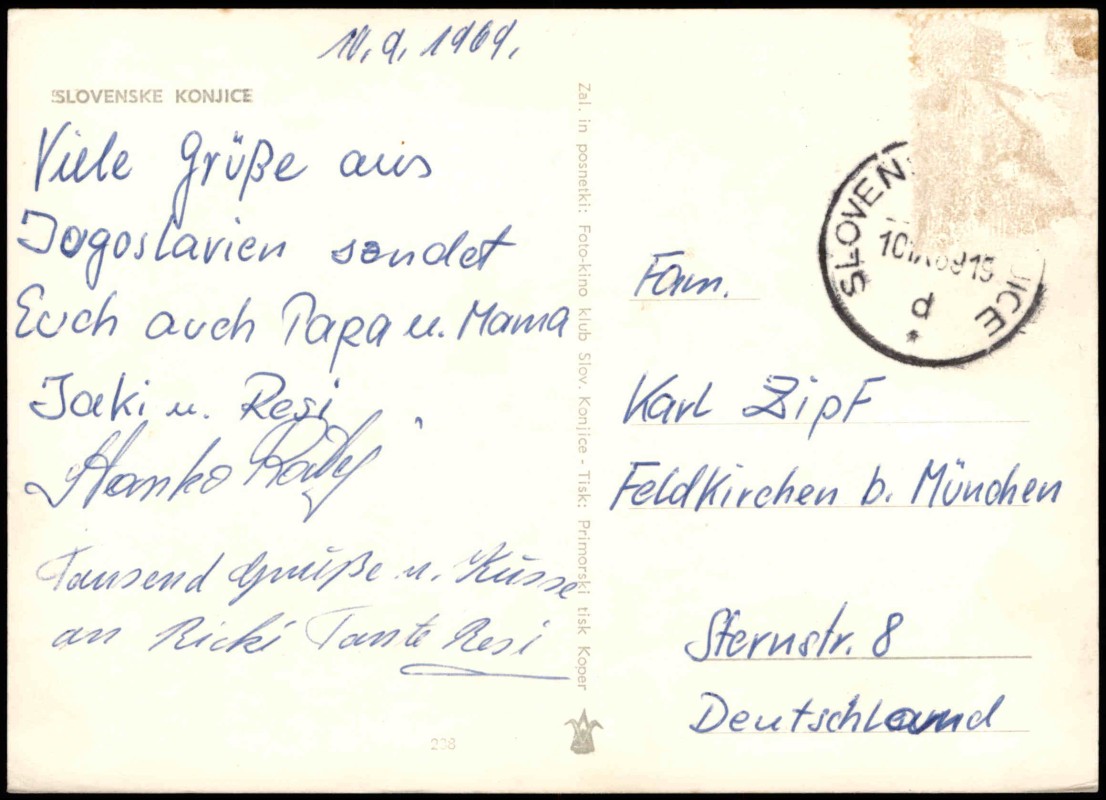 10.9.1969.
SLOVENSKE KONJICE
Viele Grüße aus
Jogoslavien sendet
Euch auch Papa u. Mama
Jaki u. Resi
Stanko
Tausend Grüße u. Küsse
an Ricki Tante Resi
238
Zal. in posnetki: Foto-kino klub Slov. Konjice - Tisk: Primorski tisk Koper
SLOVEN JICE
10 IX 69 19
d
Fam.
Karl Zipf
Feldkirchen b. München
Sternstr. 8
Deutschland